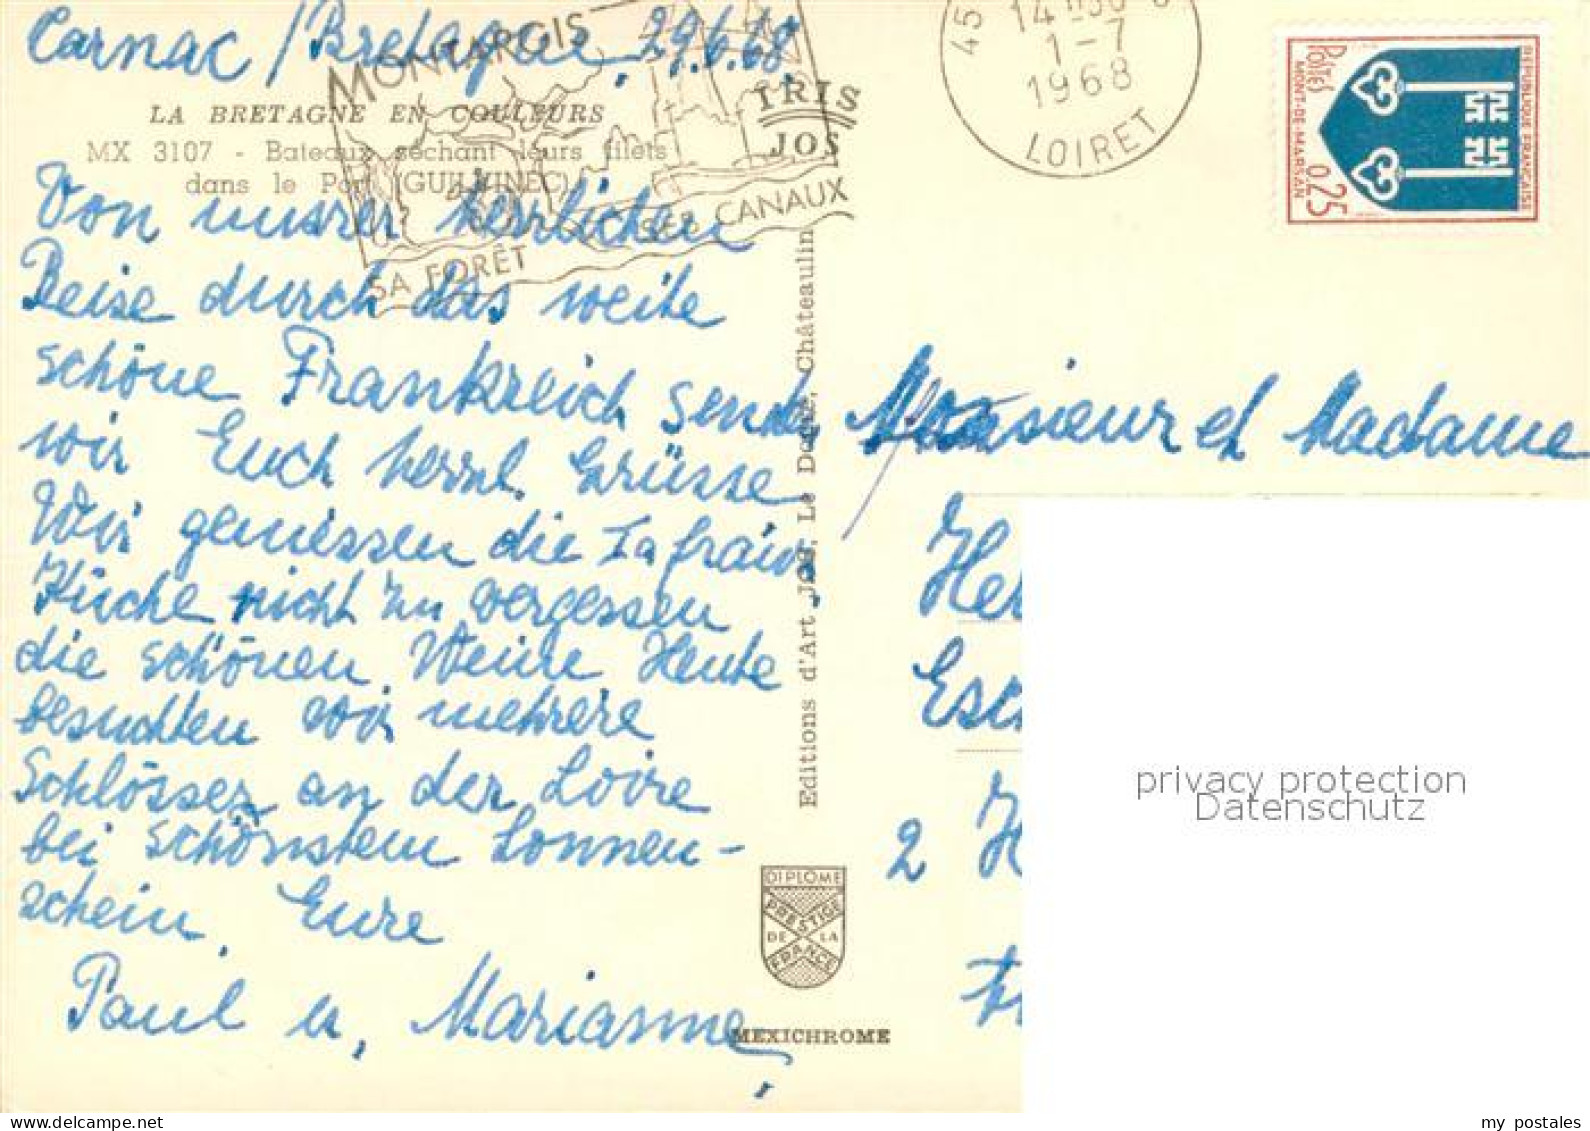 Carnac / Bretagne, 29.6.68.
MONTARGIS
SA FORÊT
SES CANAUX
45
14H30
1-7
1968
LOIRET
REPUBLIQUE FRANÇAISE
Postes
MONT-DE-MARSAN
0,25
IRIS
JOS
LA BRETAGNE EN COULEURS
MX 3107 - Bateaux séchant leurs filets
dans le Port (GUILVINEC)
Von unsrer herrlichen
Reise durch das weite
schöne Frankreich senden
wir Euch herzl. Grüsse
Wir geniessen die
Küche nicht zu vergessen
die schönen Weine. Heute
besuchten wir mehrere
Schlösser an der Loire
bei schönstem Sonnen-
schein. Eure
Paul u. Marianne
Editions d'Art JOS, Le Doaré, Châteaulin
DIPLOME
PRESTIGE
DE LA
FRANCE
MEXICHROME
Monsieur et Madame
He
Esc
2 H
privacy protection
Datenschutz
my postales